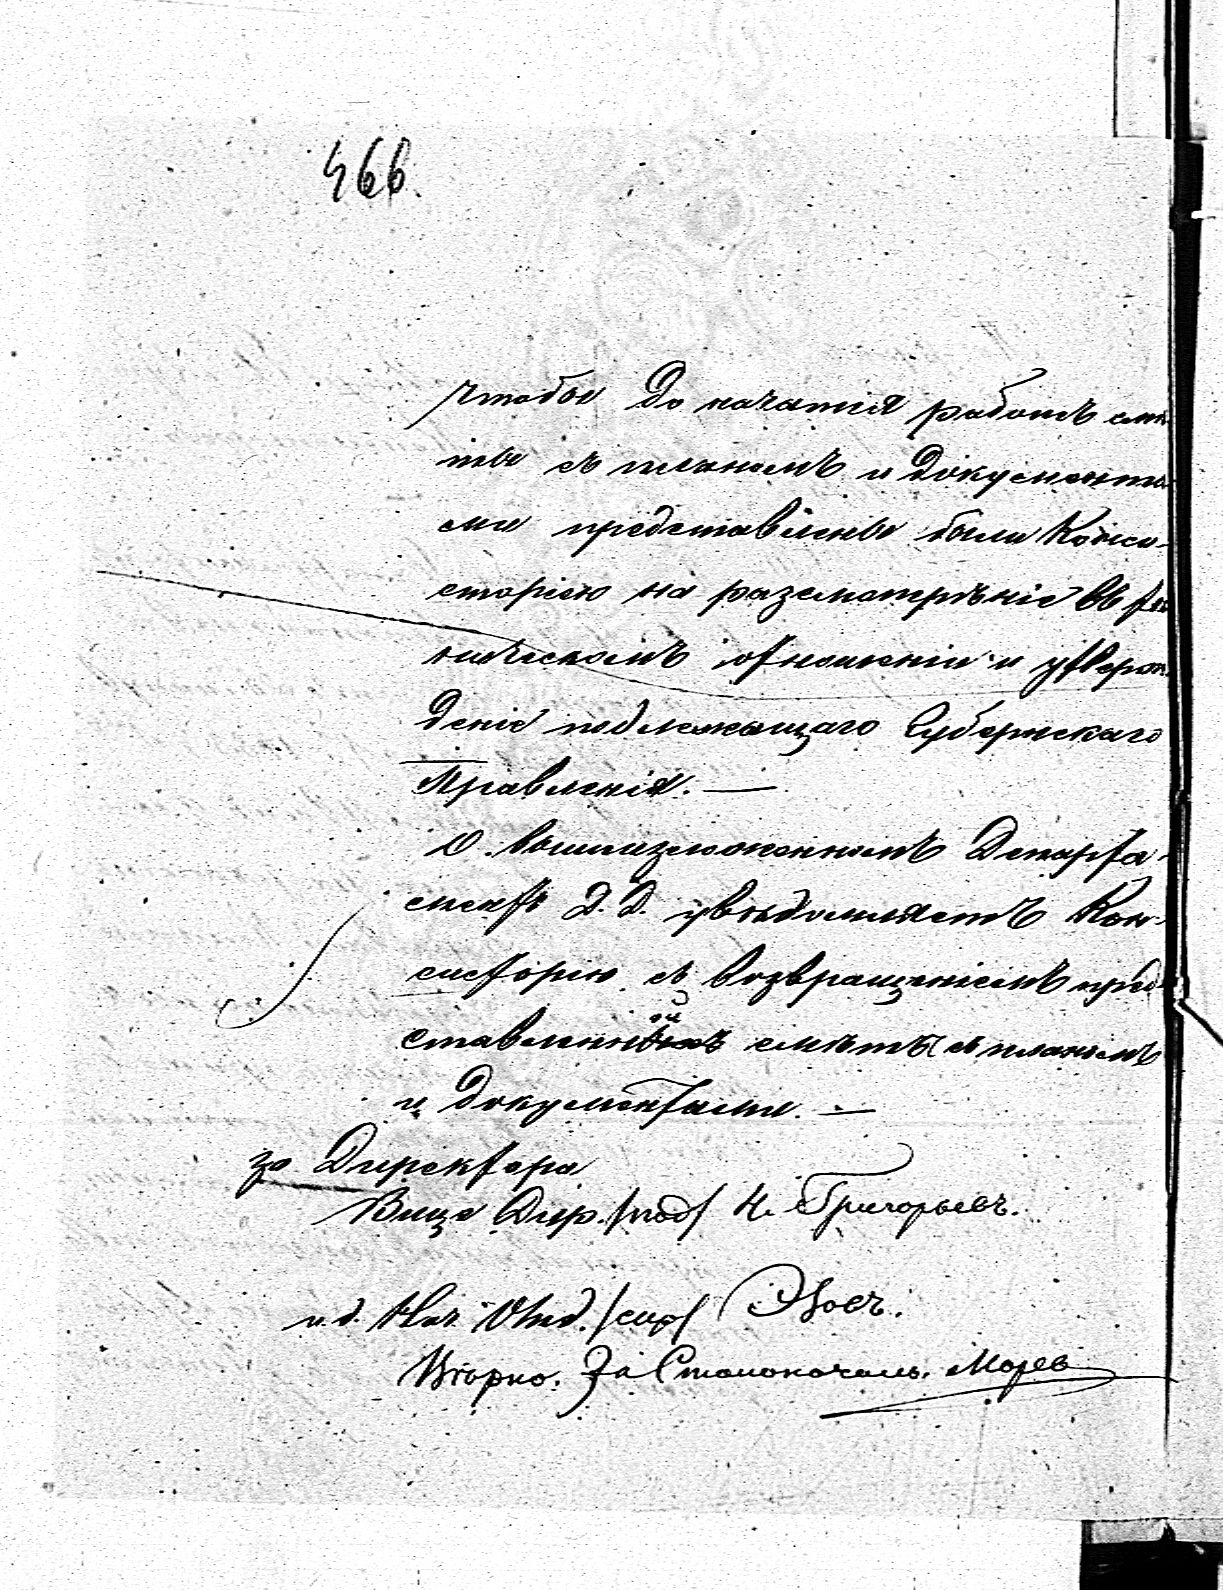 466.
чтобы до начатія работъ смѣ
ты съ планомъ и документа
ми представлены были Конси-
сторіею на разсмотрѣніе въ тех
ническомъ отношеніи и утверж
деніе подлежащаго Губернскаго
Правленія. —
О вышеизложенномъ Департа-
ментъ Д. Д. увѣдомляетъ Кон-
систорію съ возвращеніемъ пред
ставленной смѣты съ планомъ
и документами. —
за Директора
Вице Дир. /под/ Н. Григорьевъ.
и. д. Нач. Отд. /скр/
Вѣрно. За Столоначаль. Моревъ